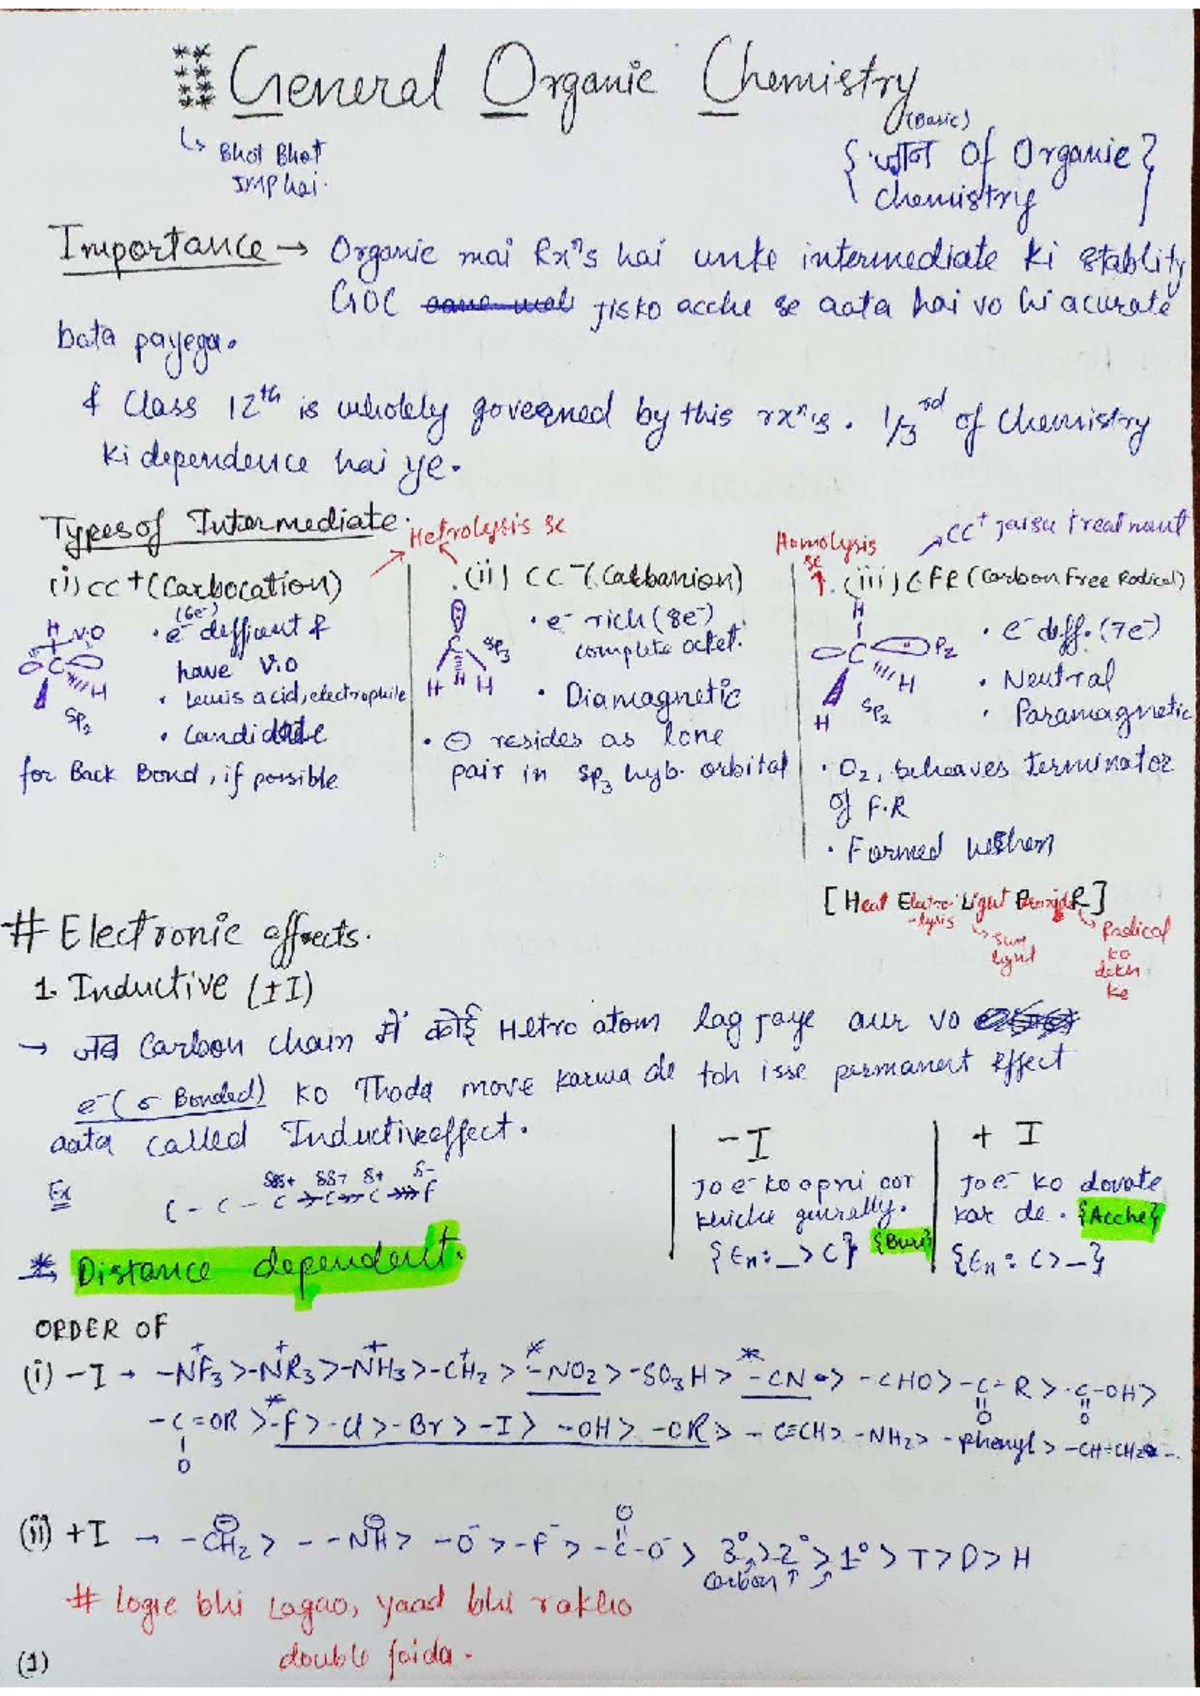 General Organic Chemistry
↳ Bhot Bhot
IMP hai.
(Basic)
{ जान Of Organic }
Chemistry
Importance → Organic mai Rxⁿs hai unke intermediate ki stablity
GOC jisko acche se aata hai vo hi acurate
bata payega.
& Class 12th is wholely governed by this rxⁿs. 1/3rd of Chemistry
ki dependence hai ye.
Types of Intermediate.
Hetrolysis se
Homolysis
se
CC+ jaisa treatmant
(i) CC+ (Carbocation)
(6e-)
• e- deffient &
have V.O
• Lewis acid, electrophile
• Candidate
for Back Bond, if possible
H V.O
C
H
SP2
(ii) CC- (Carbanion)
• e- rich (8e-)
complete octet.
• Diamagnetic
• ⊖ resides as lone
pair in SP3 hyb. orbital
C SP3
H H H
(iii) CFR (Carbon Free Radical)
• e- deff. (7e-)
• Neutral
• Paramagnetic
• O2, beheaves terminator
of F.R
• Formed when
H
C P2
H
H SP2
[Heat Electro Light PeroxideR]
-lysis
↳ sun
light
↳ Radical
ko
dekh
ke
# Electronic effects.
1. Inductive (±I)
→ जब Carbon chain में कोई Hetro atom lag jaye aur vo
e- (σ Bonded) ko Thoda move karwa de toh isse permanent effect
aata called Inductive effect.
Ex
δδδ+ δδ+ δ+ δ-
C - C - C →C→C →F
-I
Jo e- ko apni oor
khiche generally.
{Buri}
{En: _ > C}
+ I
Jo e- ko donate
kar de. {Acche}
{En: C > _}
* Distance dependent.
ORDER OF
(i) -I → -N+F3 > -N+R3 > -N+H3 > -C+H2 > -NO2 > -SO3H > -CN > -CHO > -C-R > -C-OH >
O O
-C=OR > -F > -Cl > -Br > -I > -OH > -OR > -C≡CH > -NH2 > -phenyl > -CH=CH2
O
O
(ii) +I → -C⊖H2 > -N⊖H > -O- > -F- > -C-O- > 3° > 2° > 1° > T > D > H
Carbon
# logic bhi Lagao, yaad bhi rakho
double faida.
(1)